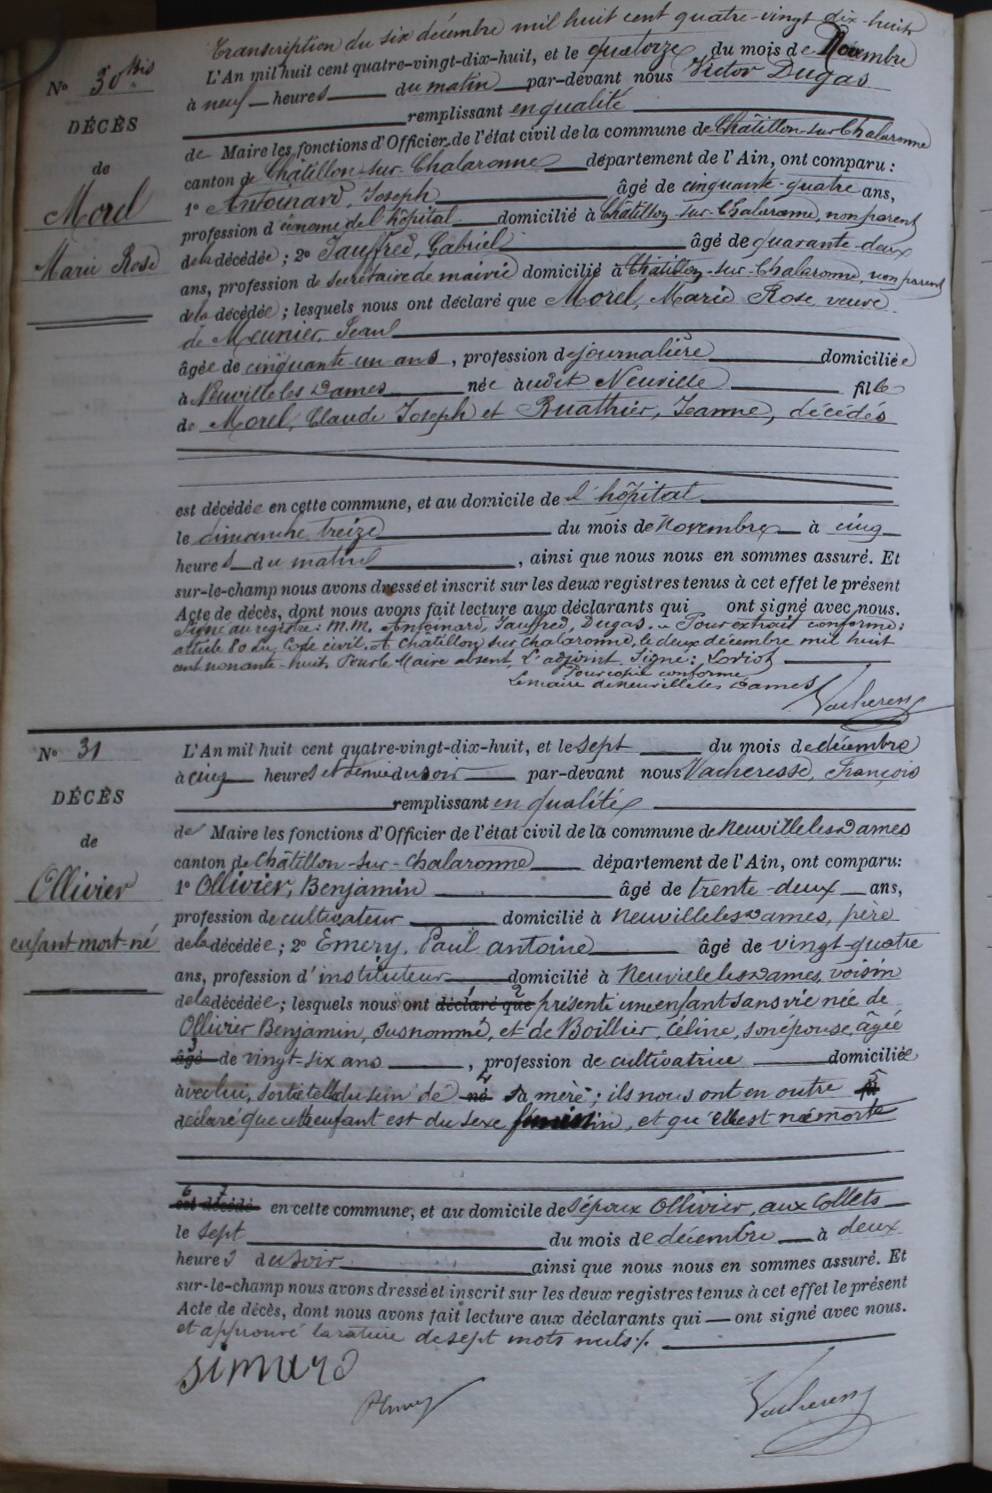 Transcription du six décembre mil huit cent quatre-vingt dix-huit
N° 30 bis
DÉCÈS
de
Morel
Marie Rose
L'An mil huit cent quatre-vingt-dix-huit, et le quatorze du mois de Novembre
à neuf heures du matin par-devant nous Victor Dugas
remplissant en qualité
de Maire les fonctions d'Officier de l'état civil de la commune de Châtillon-sur-Chalaronne
canton de Châtillon-sur-Chalaronne département de l'Ain, ont comparu :
1° Antoinard, Joseph âgé de cinquante-quatre ans,
profession d'économe de l'hôpital domicilié à Châtillon-sur-Chalaronne, non parent
de la décédée ; 2° Jauffred, Gabriel âgé de quarante-deux
ans, profession de secrétaire de mairie domicilié à Châtillon-sur-Chalaronne, non parent
de la décédée ; lesquels nous ont déclaré que Morel, Marie Rose, veuve
de Meunier, Jean
âgée de cinquante un ans, profession de journalière domiciliée
à Neuville les Dames née audit Neuville fille
de Morel, Claude Joseph et Buathier, Jeanne, décédés
est décédée en cette commune, et au domicile de l'hôpital
le dimanche treize du mois de Novembre à cinq
heures du matin, ainsi que nous nous en sommes assuré. Et
sur-le-champ nous avons dressé et inscrit sur les deux registres tenus à cet effet le présent
Acte de décès, dont nous avons fait lecture aux déclarants qui ont signé avec nous.
Signé au registre : M.M. Antoinard, Jauffred, Dugas. - Pour extrait conforme :
article 80 du Code civil. A Châtillon sur Chalaronne, le deux décembre mil huit
cent nonante-huit. Pour le Maire absent, L'adjoint Signé : Loriot
Pour copie conforme
Le maire de Neuville les Dames
Vacheresse
N° 31
DÉCÈS
de
Ollivier
enfant mort-né
L'An mil huit cent quatre-vingt-dix-huit, et le sept du mois de décembre
à cinq heures et demie du soir par-devant nous Vacheresse, François
remplissant en qualité
de Maire les fonctions d'Officier de l'état civil de la commune de Neuville les Dames
canton de Châtillon-sur-Chalaronne département de l'Ain, ont comparu:
1° Ollivier, Benjamin âgé de trente-deux ans,
profession de cultivateur domicilié à Neuville les Dames, père
de la décédée ; 2° Emery, Paul Antoine âgé de vingt-quatre
ans, profession d'instituteur domicilié à Neuville les Dames, voisin
de la décédée ; lesquels nous ont déclaré que présenté une enfant sans vie née de
Ollivier Benjamin, susnommé, et de Boillier, Céline, son épouse, âgée
âgé de vingt-six ans, profession de cultivatrice domiciliée
avec lui, sortie telle du sein de né sa mère ; ils nous ont en outre
déclaré que cette enfant est du sexe féminin, et qu'elle est née morte
est décédé en cette commune, et au domicile des époux Ollivier, aux Collets
le sept du mois de décembre à deux
heures du soir ainsi que nous nous en sommes assuré. Et
sur-le-champ nous avons dressé et inscrit sur les deux registres tenus à cet effet le présent
Acte de décès, dont nous avons fait lecture aux déclarants qui ont signé avec nous.
et approuvé la rature de sept mots nuls ./.
PEmery
Vacheresse